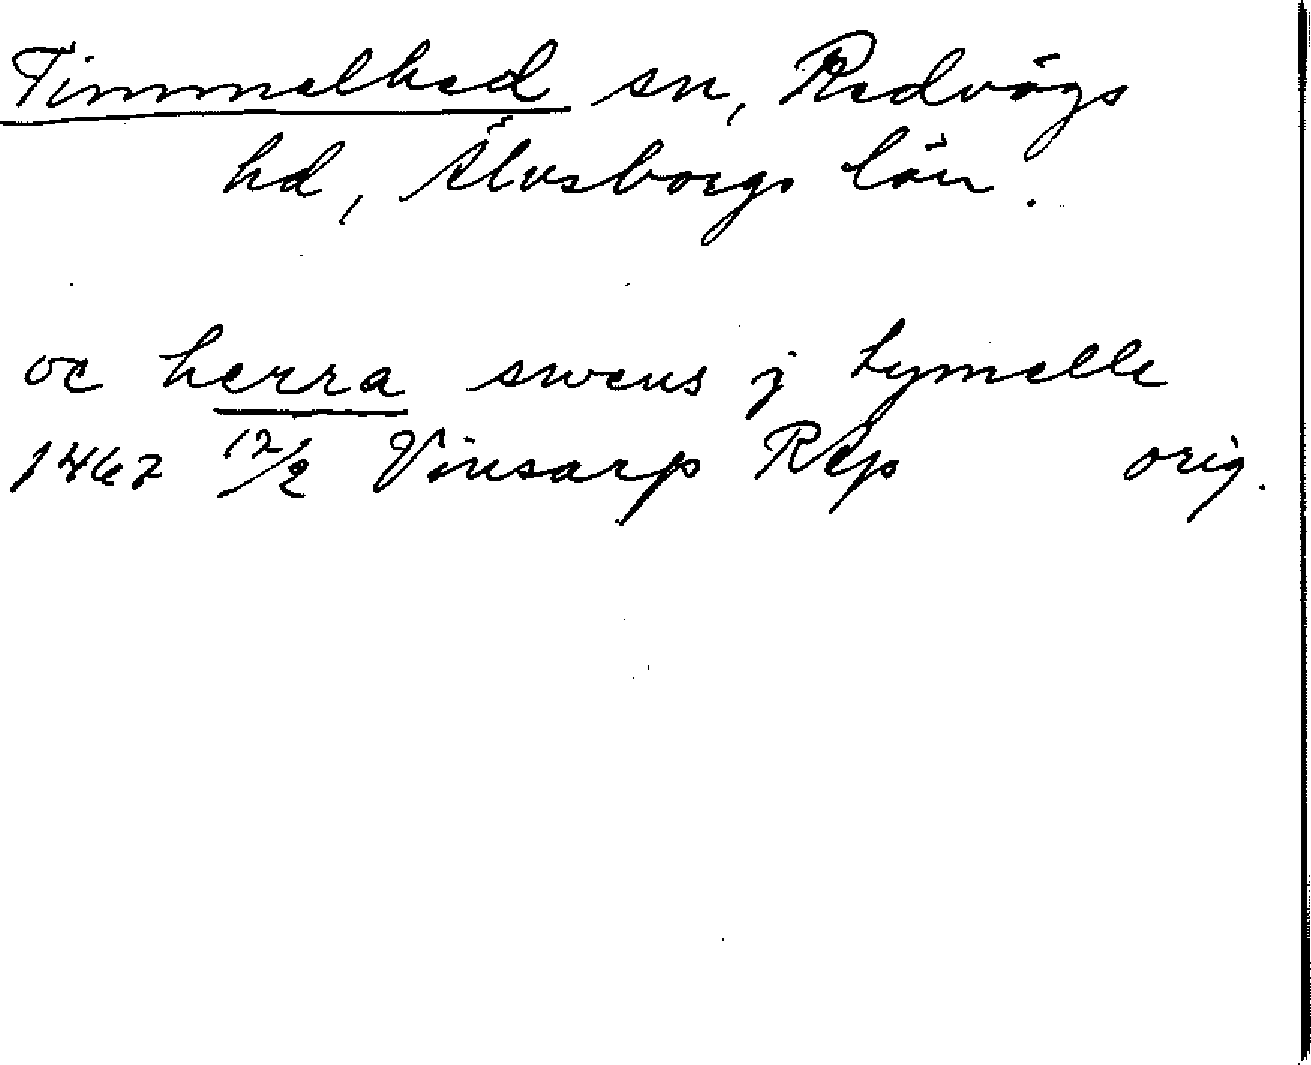 Timmelhed sn, Redvägs
hd, Älvsborgs län.
oc herra swens j tymelle
1462 12/2 Vinsarp Rep orig.